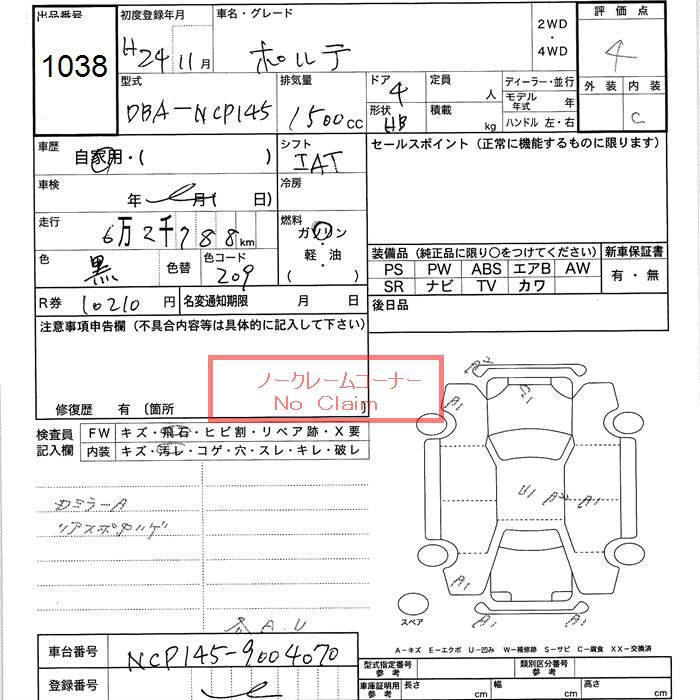 出品番号 初度登録年月 車名・グレード 2WD・4WD 評価点
1038 H24 11月 ポルテ 4
外装 内装 C
型式 排気量 ドア 定員 人 ディーラー・並行
DBA-NCP145 1500cc 4 形状 HB 積載 kg モデル年式 年
ハンドル 左・右
車歴 自家用・( ) シフト IAT セールスポイント (正常に機能するものに限ります)
車検 年 月( 日) 冷房
走行 6万2千788km 燃料 ガソリン・軽油 ( )
色 黒 色替 色コード 209
装備品 (純正品に限り○をつけてください) 新車保証書
PS PW ABS エアB AW 有・無
SR ナビ TV カワ
R券 10210円 名変通知期限 月 日 後日品
注意事項申告欄 (不具合内容等は具体的に記入して下さい)
ノークレームコーナー
No Claim
修復歴 有 〔箇所 〕
検査員記入欄 FW キズ・飛石・ヒビ割・リペア跡・X要
内装 キズ・汚レ・コゲ・穴・スレ・キレ・破レ
A2
A1
U1 A2 A1
A1
A1
スペア
A.U
A-キズ E-エクボ U-凹み W-補修跡 S-サビ C-腐食 XX-交換済
車台番号 NCP145-9004070
型式指定番号 参考 類別区分番号 参考
登録番号
車庫証明用 参考 長さ cm 幅 cm 高さ cm